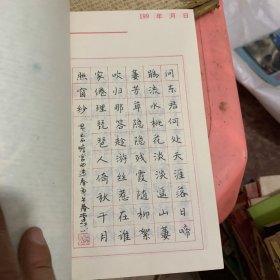 199 年 月 日
问东君何处天涯落日啼
鹃流水桃花淡淡遥山萋
萋芳草隐隐残霞随柳絮
吹归那答趁游丝惹在谁
家倦理琵琶人倚秋千月
照窗纱